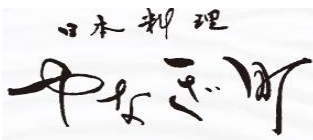 日本料理
やなぎ町